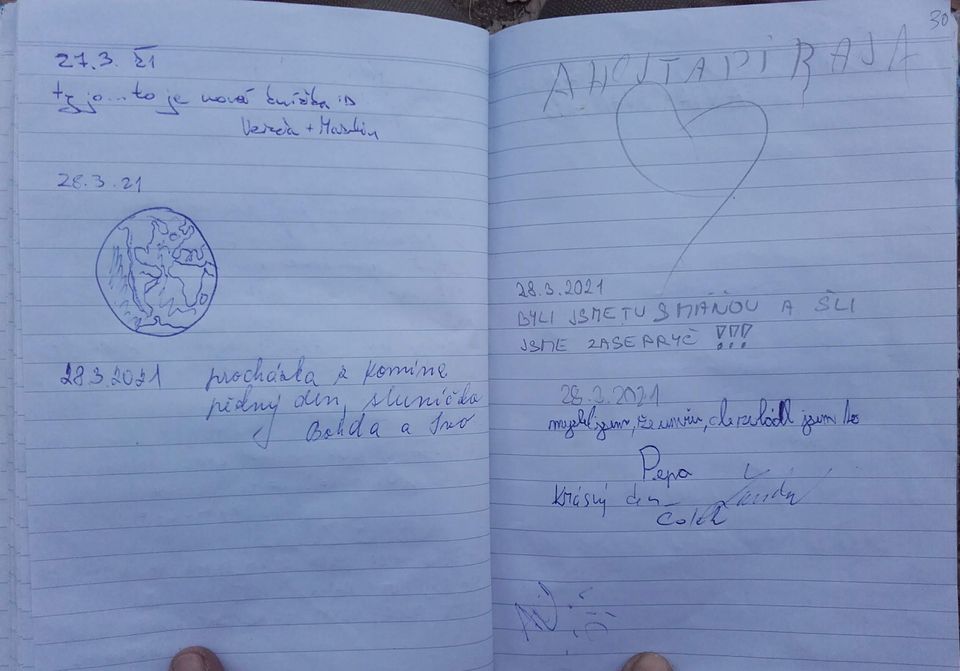 27.3. 21
ty jo... to je nová knížka :D
Verča + Martin
28.3.21
28.3.2021 procházka z Komína
pěkný den, sluníčko
Bohda a Ivo
30
AHOJ TAPIRAJA
28.3.2021
BYLI JSME TU S MÁŇOU A ŠLI
JSME ZASE PRYČ !!!
28.3.2021
myslel jsem, že umřu, ale zvládl jsem to
Pepa
Krásný den